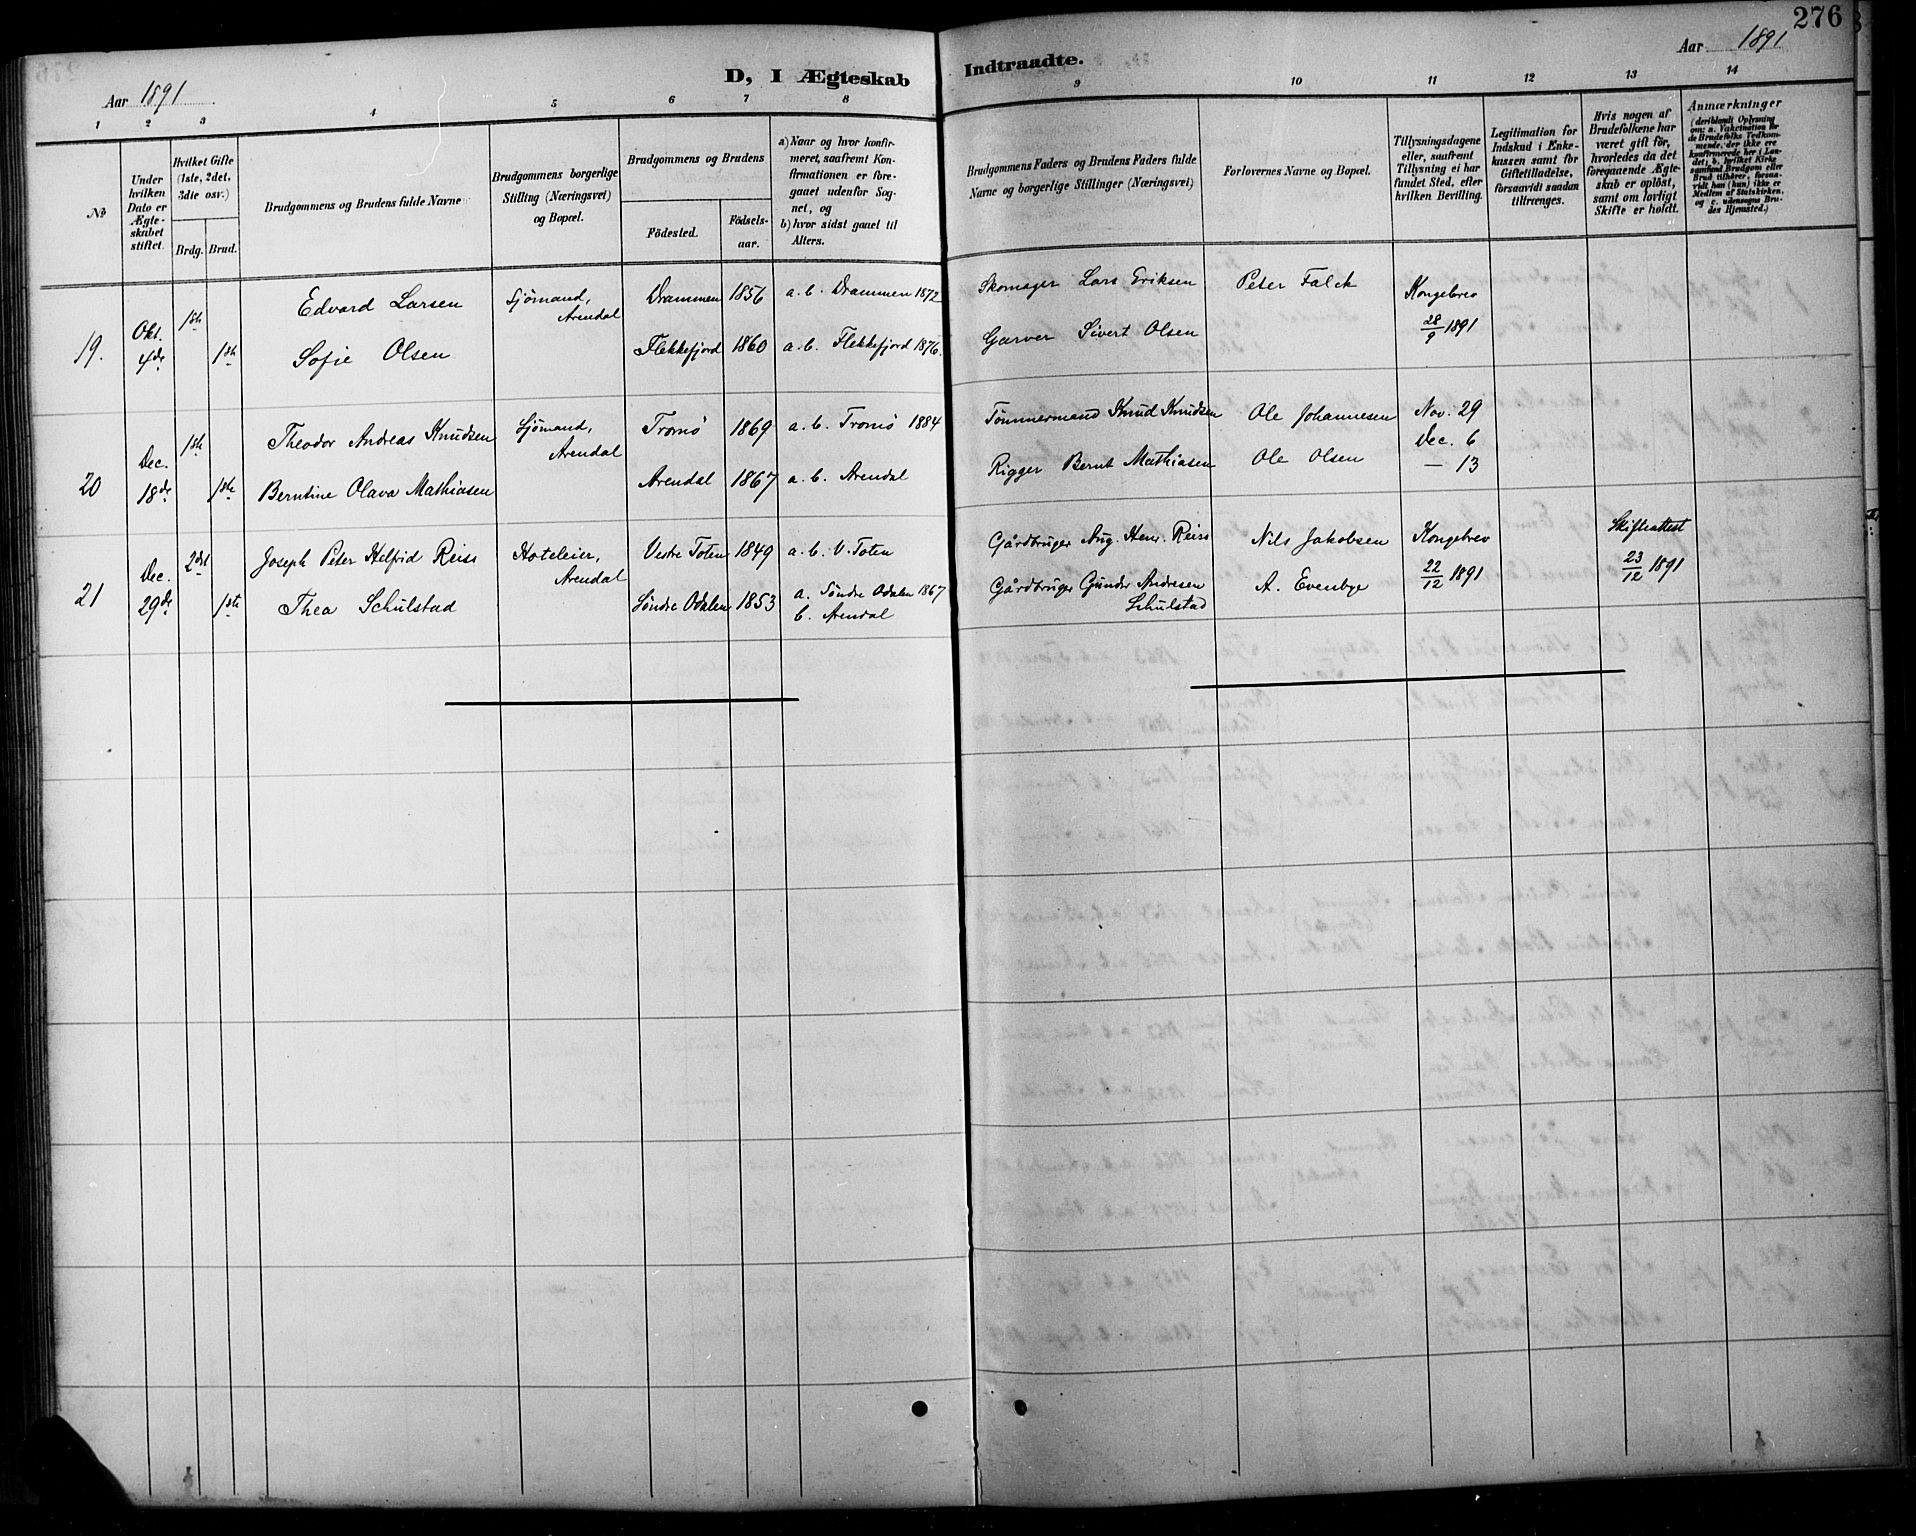 276
Aar 1891
Aar 1891
D, I Ægteskab Indtraadte.
1 2 3 4 5 6 7 8 9 10 11 12 13 14
No
Under hvilken Dato er Ægteskabet stiftet.
Hvilket Gifte (1ste, 2det, 3die osv.)
Brdg. Brud.
Brudgommens og Brudens fulde Navne
Brudgommens borgerlige Stilling (Næringsvei) og Bopæl.
Brudgommens og Brudens
Födested.
Födselsaar.
a) Naar og hvor konfirmeret, saafremt Konfirmationen er foregaaet udenfor Sognet, og
b) hvor sidst gaaet til Alters.
Brudgommens Faders og Brudens Faders fulde Navne og borgerlige Stillinger (Næringsvei)
Forlovernes Navne og Bopæl.
Tillysningsdagene eller, saafremt Tillysning ei har fundet Sted, efter hvilken Bevilling.
Legitimation for Indskud i Enkekassen samt for Giftetilladelse, forsaavidt saadan tiltrænges.
Hvis nogen af Brudefolkene har været gift för, hvorledes da det foregaaende Ægteskab er oplöst, samt om lovligt Skifte er holdt.
Anmærkninger
(deriblandt Oplysning om: a. Vakcination for de Brudefolks Vedkommende, der ikke ere konfirmerede her i Landet; b. hvilket Kirkesamfund Brudgom eller Brud tilhører, forsaavidt han (hun) ikke er Medlem af Statskirken, og c. udensogns Brudes Hjemsted.)
19. Okt. 4de 1ste Edvard Larsen Sjømand, Arendal Drammen 1856 a.b. Drammen 1872 Skomager Lars Eriksen Peter Falck Kongebrev 28/9 1891
1ste Sofie Olsen Flekkefjord 1860 a.b. Flekkefjord 1876. Garver Sivert Olsen
20 Dec. 18de 1ste Theodor Andreas Knudsen Sjømand, Arendal Tromö 1869 a.b. Tromö 1884 Tømmermand Knud Knudsen Ole Johannesen Nov. 29
Dec. 6
1ste Berntine Olava Mathiasen Arendal 1867 a.b. Arendal Rigger Bernt Mathiasen Ole Olsen — 13
21 Dec. 29de 2det Joseph Peter Helfrid Reiss Hoteleier, Arendal Vestre Toten 1849 a.b. V. Toten Gårdbruger Aug. Henr. Reiss Nils Jakobsen Kongebrev 22/12 1891 Skifteattest 23/12 1891
1ste Thea Schulstad Søndre Odalen 1853 a. Søndre Odalen 1867
b. Arendal Gårdbruger Gunder Andresen Schulstad A. Evenbye